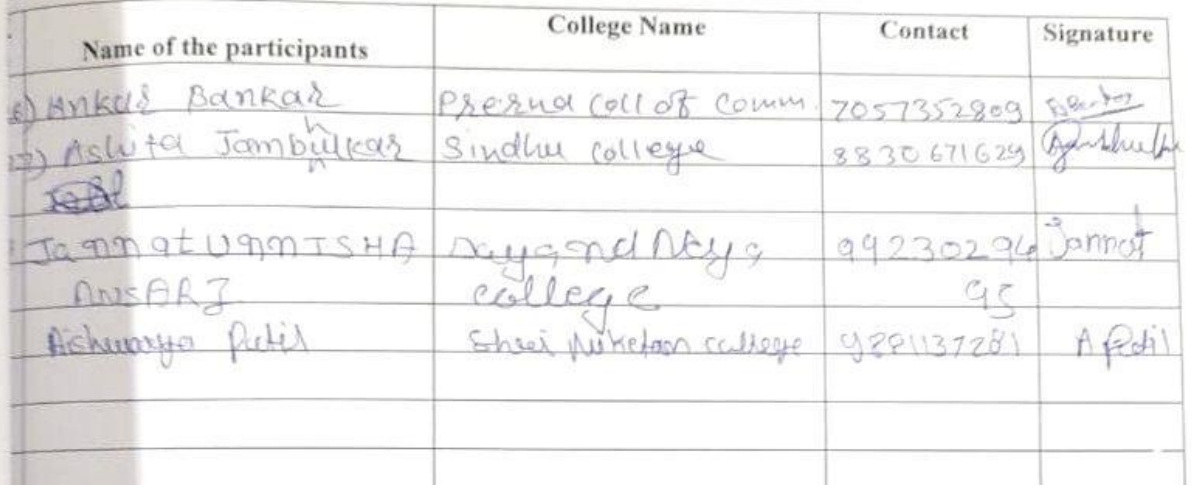 Name of the participants College Name Contact Signature
6) Ankus Bankar Prerna Coll of Comm. 7057352809
7) Ashita Jambhulkar Sindhu College 8830671629
JannatUnnISHA Dayanand Arya 99230294 Jannat
ANSARI college 95
Aishwarya Patil Shri Niketan college A Patil